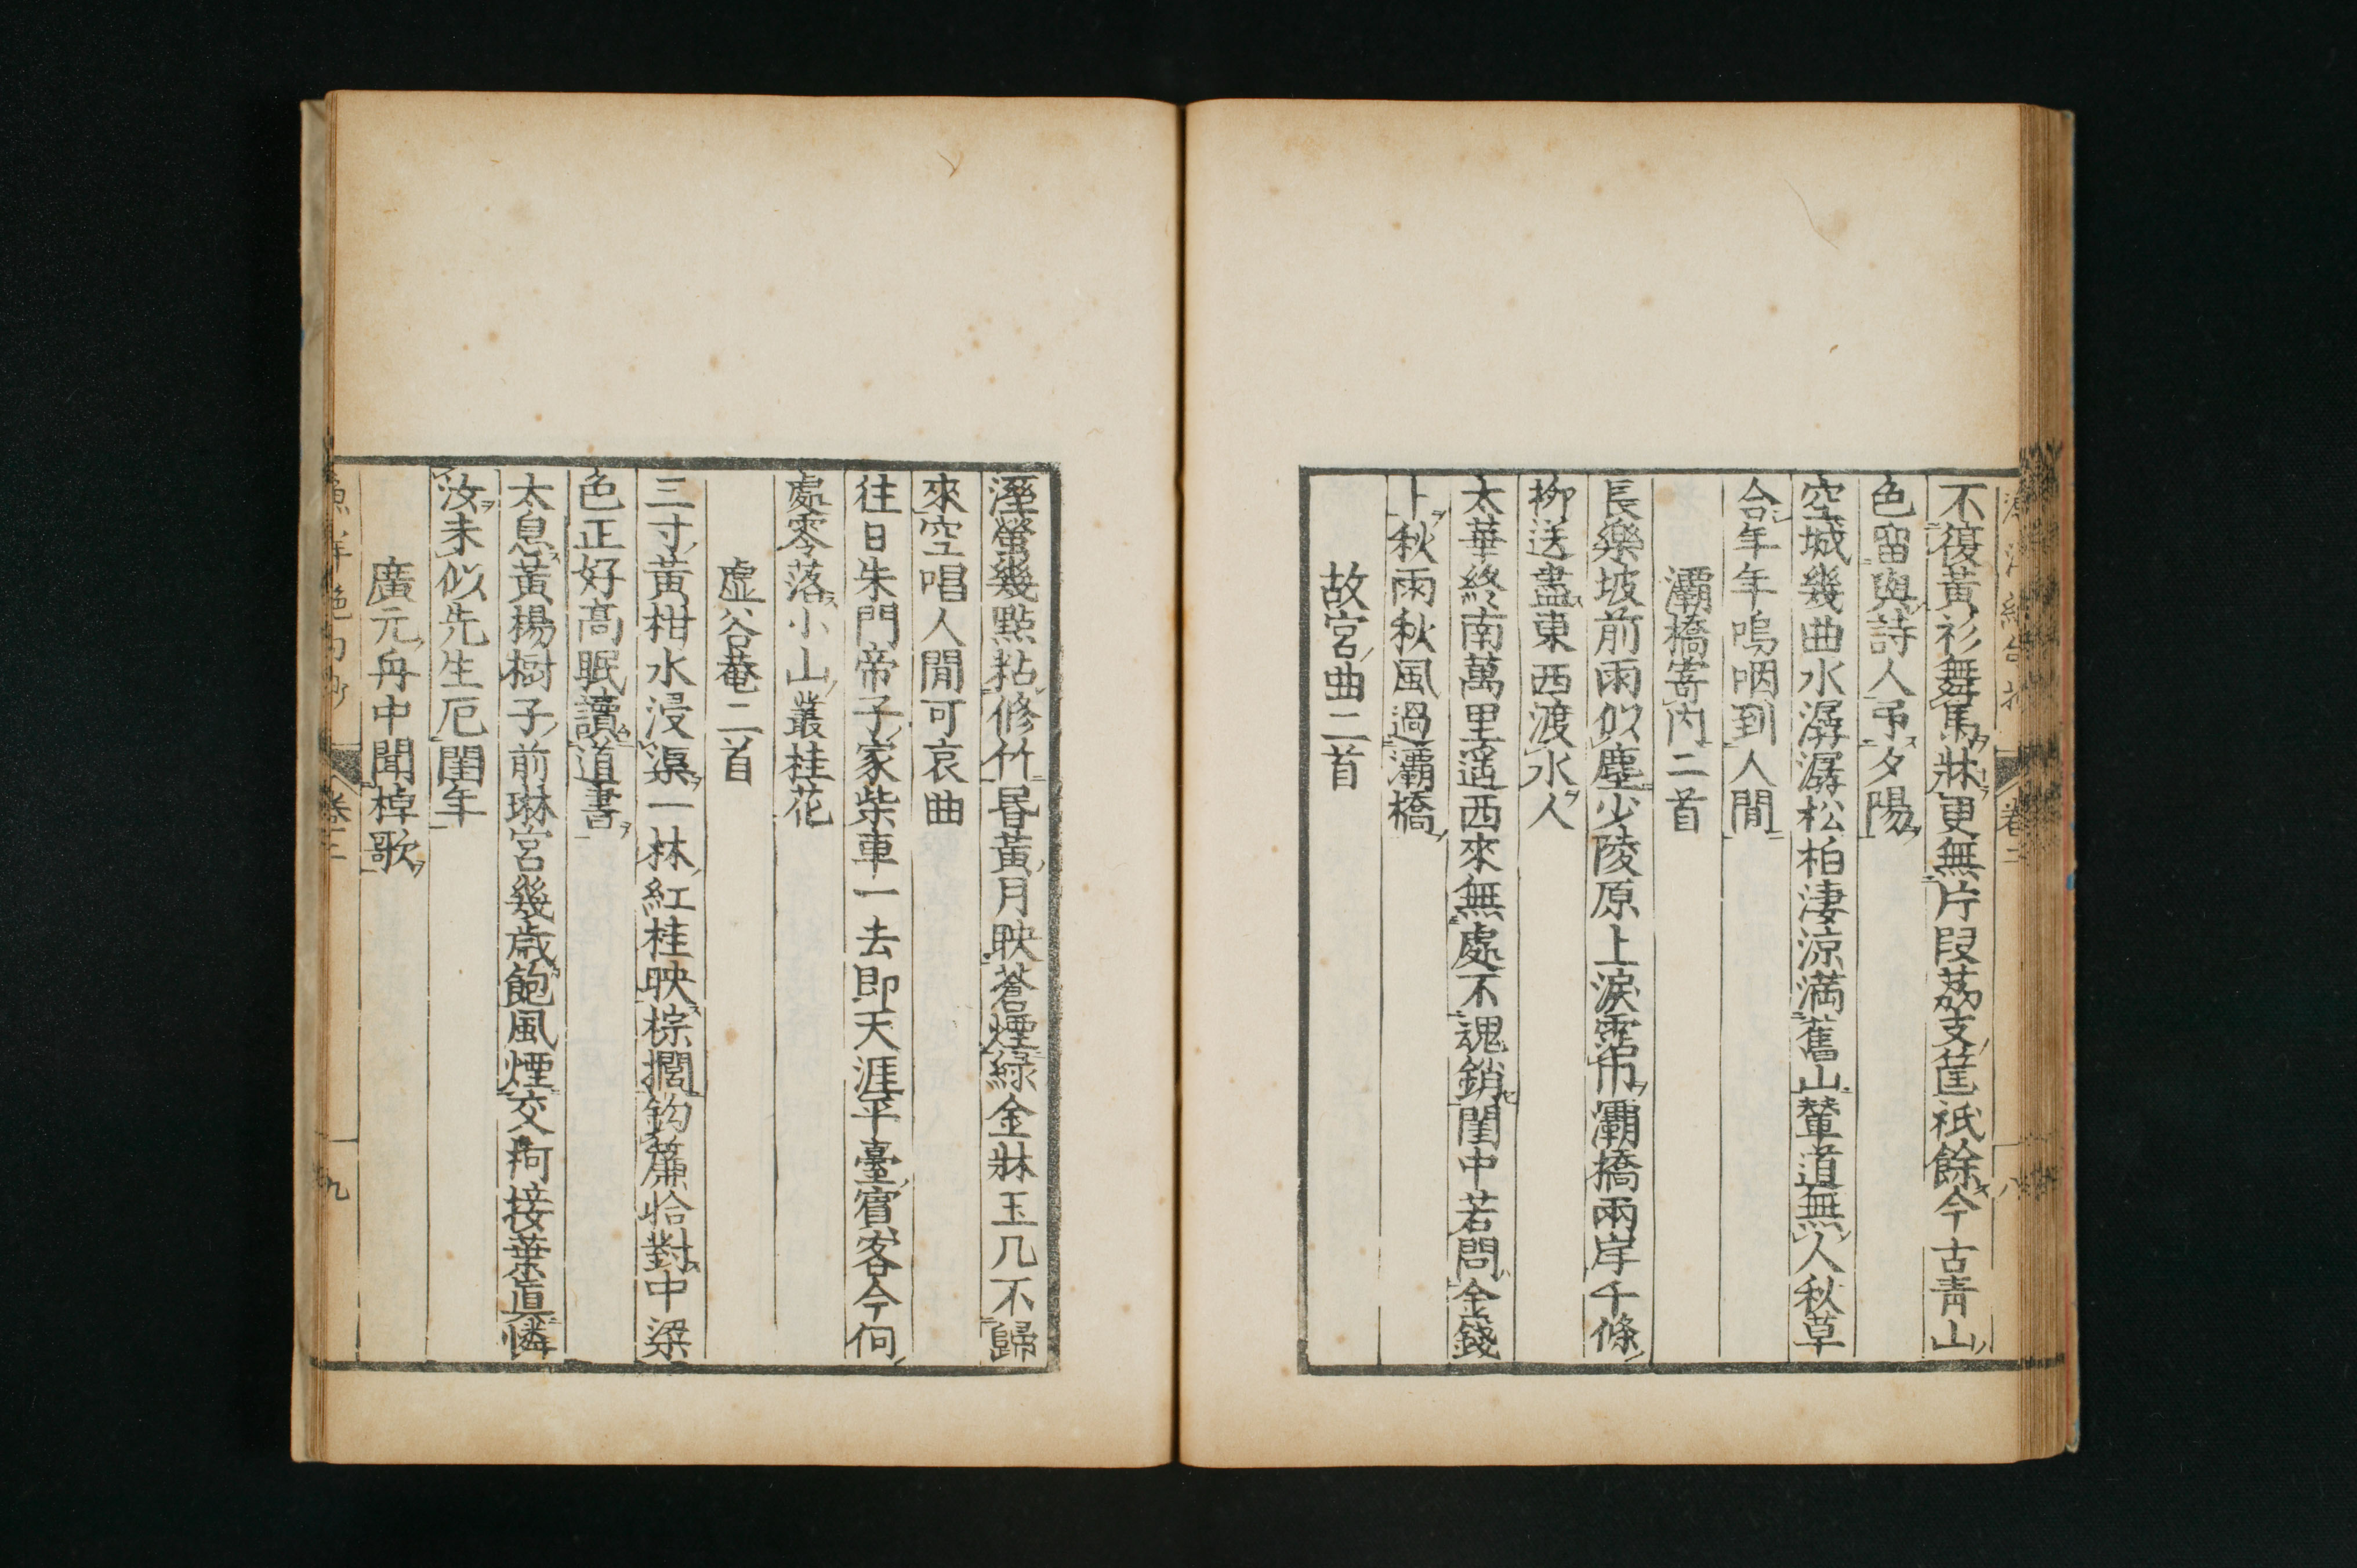 不復黃衫舞馬牀更無片段荔支筐祇餘今古青山
色留與詩人弔夕陽
空城幾曲水潺潺松柏淒涼滿舊山輦道無人秋草
合年年嗚咽到人間
灞橋寄内二首
長樂坡前雨似塵少陵原上淚霑巾灞橋兩岸千條
柳送盡東西渡水人
太華終南萬里遙西來無處不魂銷閨中若問金錢
卜秋雨秋風過灞橋
故宮曲二首
溼螢幾點粘修竹昬黃月映蒼煙綠金牀玉几不歸
來空唱人間可哀曲
往日朱門帝子家柴車一去即天涯平臺賓客今何
處零落小山叢桂花
虛谷菴二首
三寸黃柑水浸渠一林紅桂映棕櫚鈎簾恰對中梁
色正好高眠讀道書
太息黃楊樹子前琳宮幾歲飽風煙交柯接葉眞憐
汝未似先生厄閏年
廣元舟中聞棹歌
卷三
九